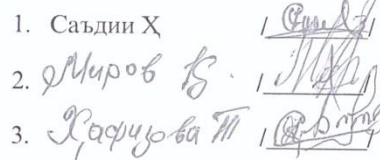 1. Саъдии Ҳ
2. Миров В.
3. Ҳафизова Т